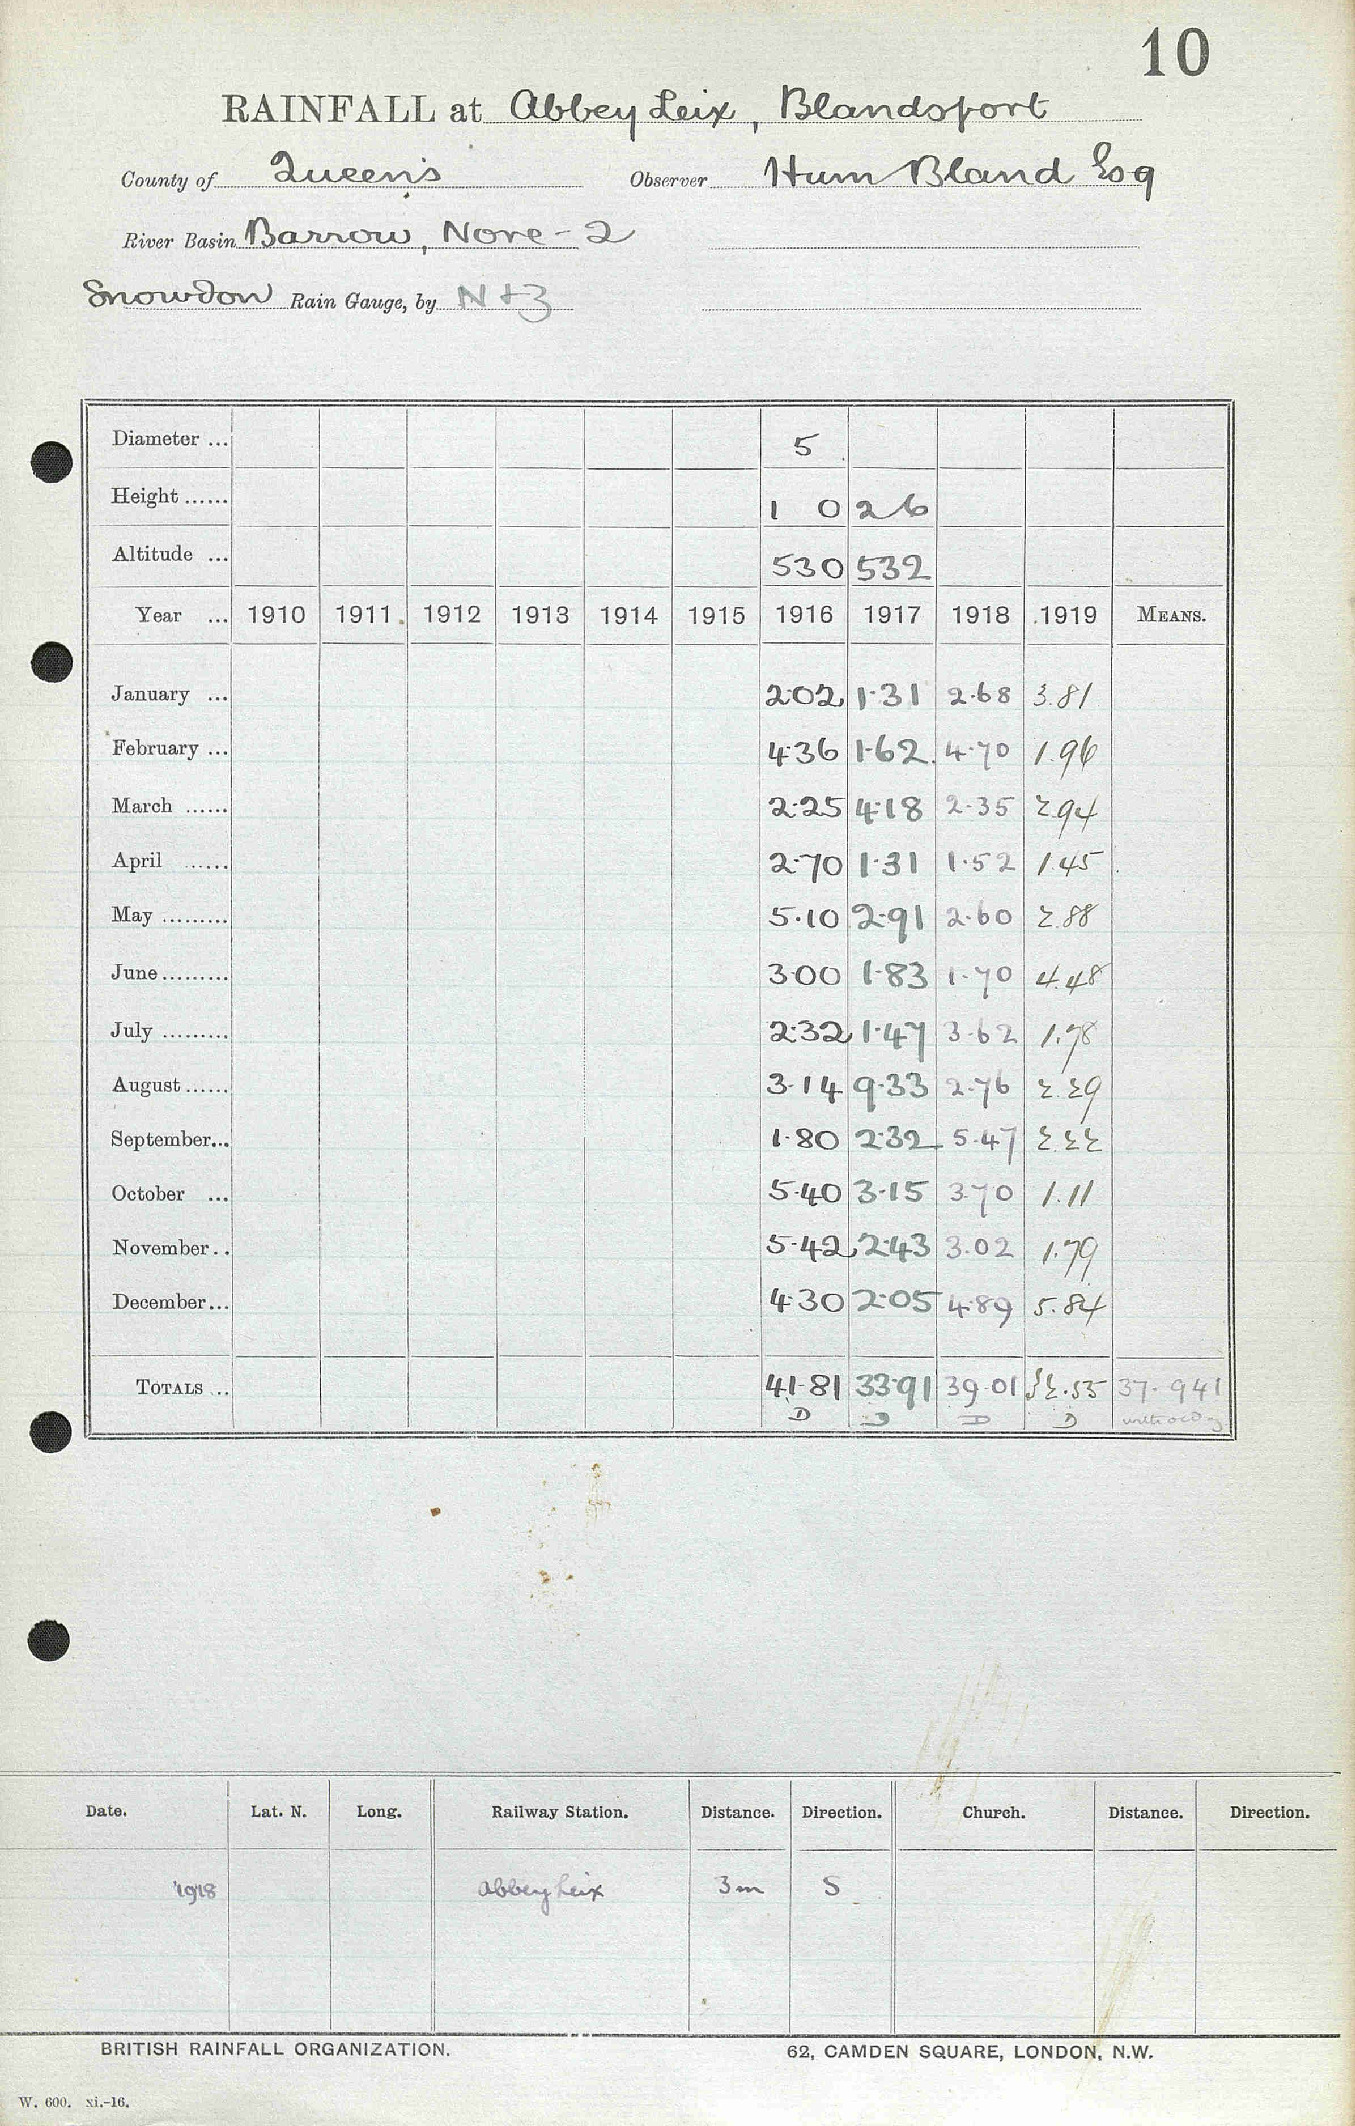 10
RAINFALL at Abbey Leix, Blandsfort
County of Queen's Observer Hum Bland Esq
River Basin Barrow, Nore - 2
Snowdon Rain Gauge, by N + Z
Diameter ... 5
Height ...... 1 0 2 6
Altitude ... 530 532
Year ... 1910 1911 1912 1913 1914 1915 1916 1917 1918 1919 MEANS.
January ... 2.02 1.31 2.68 3.81
February ... 4.36 1.62 4.70 1.96
March ...... 2.25 4.18 2.35 2.94
April ...... 2.70 1.31 1.52 1.45
May ......... 5.10 2.91 2.60 2.88
June ......... 3.00 1.83 1.70 4.48
July ......... 2.32 1.47 3.62 1.78
August ...... 3.14 9.33 2.76 2.29
September... 1.80 2.32 5.47 2.22
October ... 5.40 3.15 3.70 1.11
November .. 5.42 2.43 3.02 1.79
December ... 4.30 2.05 4.89 5.84
TOTALS ... 41.81 33.91 39.01 32.55 37.941
D D D D with old g
Date. Lat. N. Long. Railway Station. Distance. Direction. Church. Distance. Direction.
1918 Abbey Leix 3m S
BRITISH RAINFALL ORGANIZATION. 62, CAMDEN SQUARE, LONDON, N.W.
W. 600. xi.-16.